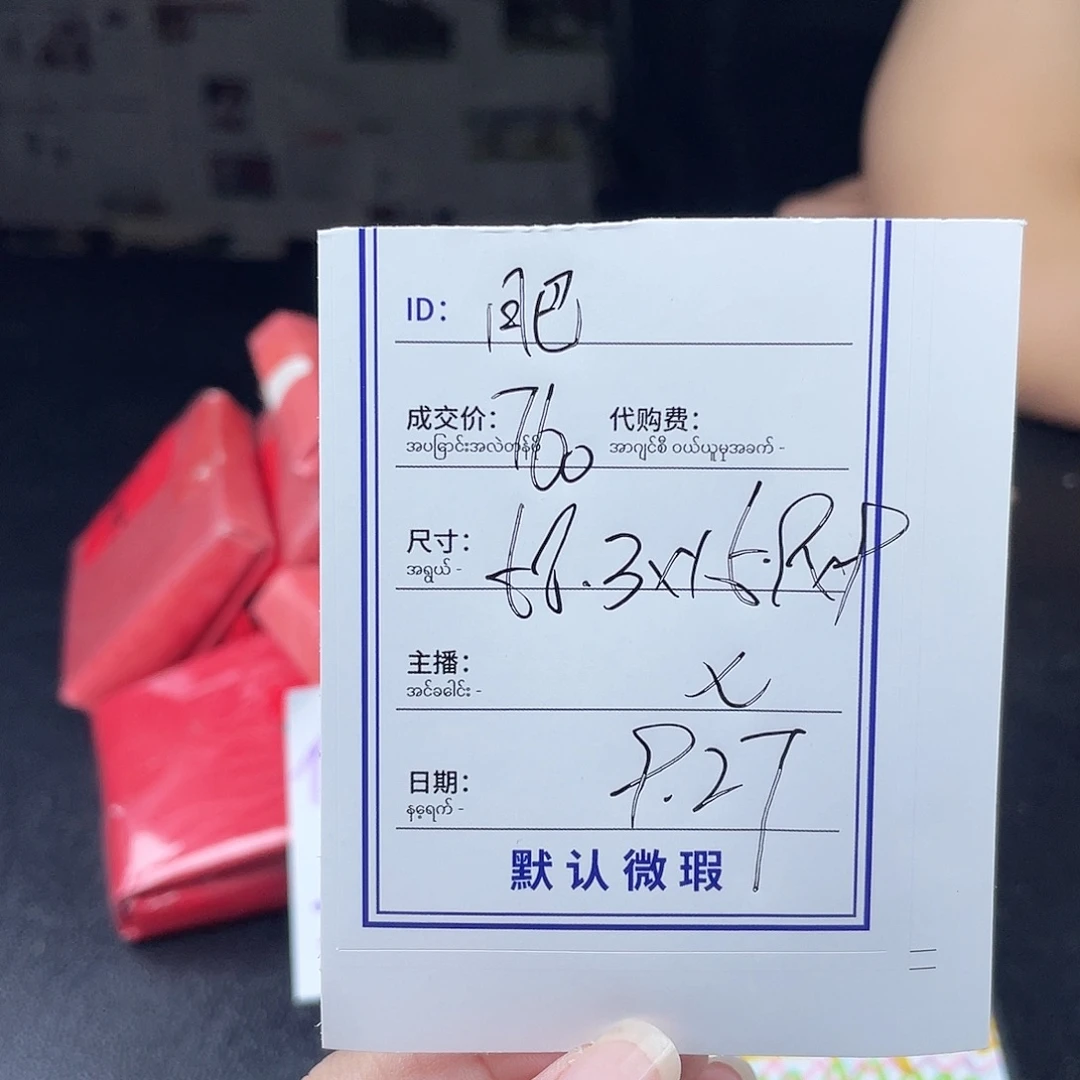 ID：
成交价：760 代购费：
အပမြာင်းအလဲတန်ဖို အာဂျင်စီ ဝယ်ယူမှုအခက် -
尺寸：
အရွယ် -
主播：x
အင်ခင်ေါင်း -
日期：9.27
နေ့ရက် -
默认微瑕